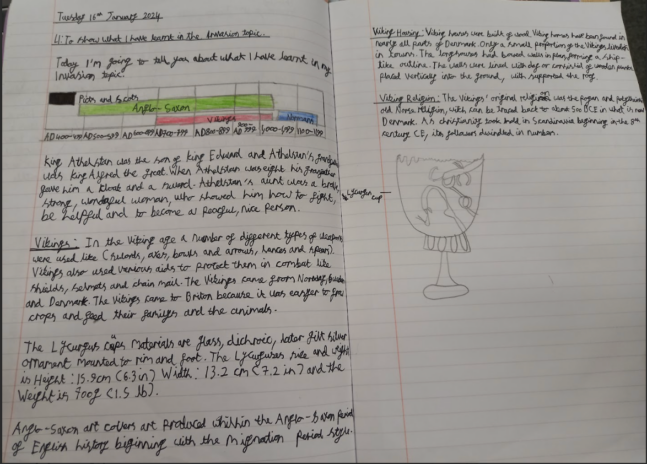 Tuesday 16th January 2024
L.I To show what I have learnt in the Invasion topic.
Today I'm going to tell you about what I have learnt in my
Invasion topic.
Picts and Scots
Anglo-Saxon
Vikings
Normans
AD400-499 AD500-599 AD600-699 AD700-799 AD800-899 AD900-999 1000-1099 1100-1199
King Athelstan was the son of king Edward and Athelstan's grandpa
was King Alfred the great. When Athelstan was eight his grandfather
gave him a cloak and a sword. Athelstan's aunt was a brave,
strong, wonderful woman, who showed him how to fight,
be helpful and to become a peaceful, nice person.
Vikings: In the Viking age a number of different types of weapons
were used like (swords, axes, bows and arrows, lances and spears).
Vikings also used various aids to protect them in combat like
shields, helmets and chain mail. The Vikings came from Norway,
and Denmark. The Vikings came to Britain because it was easier to grow
crops and feed their families and the animals.
The Lycurgus cups materials are glass, dichroic, later gilt silver
ornament mounted to rim and foot. The Lycurguses size and weight
is Height: 15.9cm (6.3in) Width: 13.2 cm (7.2 in) and the
Weight is 700g (1.5 lb).
Anglo-Saxon art covers art produced whithin the Anglo-Saxon period
of English history beginning with the Migration Period style.
Viking Housing: Viking houses were built of wood. Viking houses have been found in
nearly all parts of Denmark. Only a small proportion of the Vikings lived
in towns. The longhouses had bowed walls in plan, forming a ship-
like outline. The walls were lined with clay or consisted of wooden planks
placed vertically into the ground, with supported the roof.
Viking Religion: The Vikings' original religion was the pagan and polytheistic
old Norse religion, wich can be traced back to about 500 BCE in what is now
Denmark. As christianity took hold in Scandinavia beginning in the 8th
century CE, its followers dwindled in number.
Lycurgus
cup